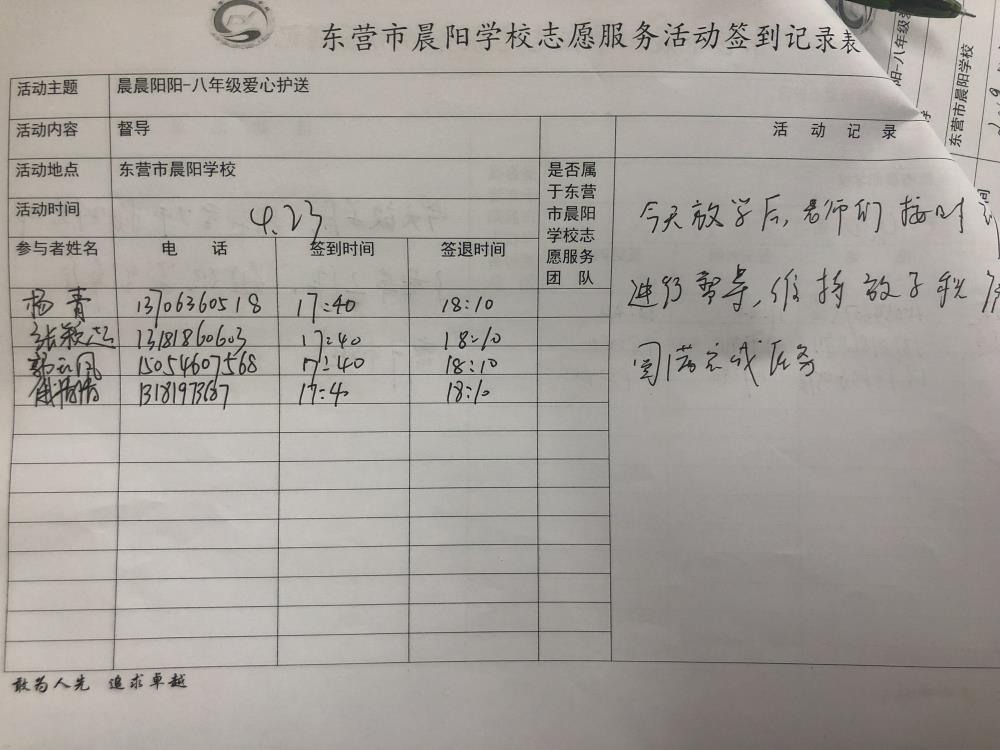 东营市晨阳学校志愿服务活动签到记录表
活动主题 晨晨阳阳-八年级爱心护送
活动内容 督导
活动地点 东营市晨阳学校
活动时间 4.23
参与者姓名 电 话 签到时间 签退时间 是否属于东营市晨阳学校志愿服务团队
杨青 13706360518 17:40 18:10
张颖 13181860603 17:40 18:10
郭立凤 15054607568 17:40 18:10
17:40 18:10
活动记录
今天放学后,老师们按时
进行督导,维持放学秩序
圆满完成任务
敢为人先 追求卓越
阳-八年级
东营市晨阳学校